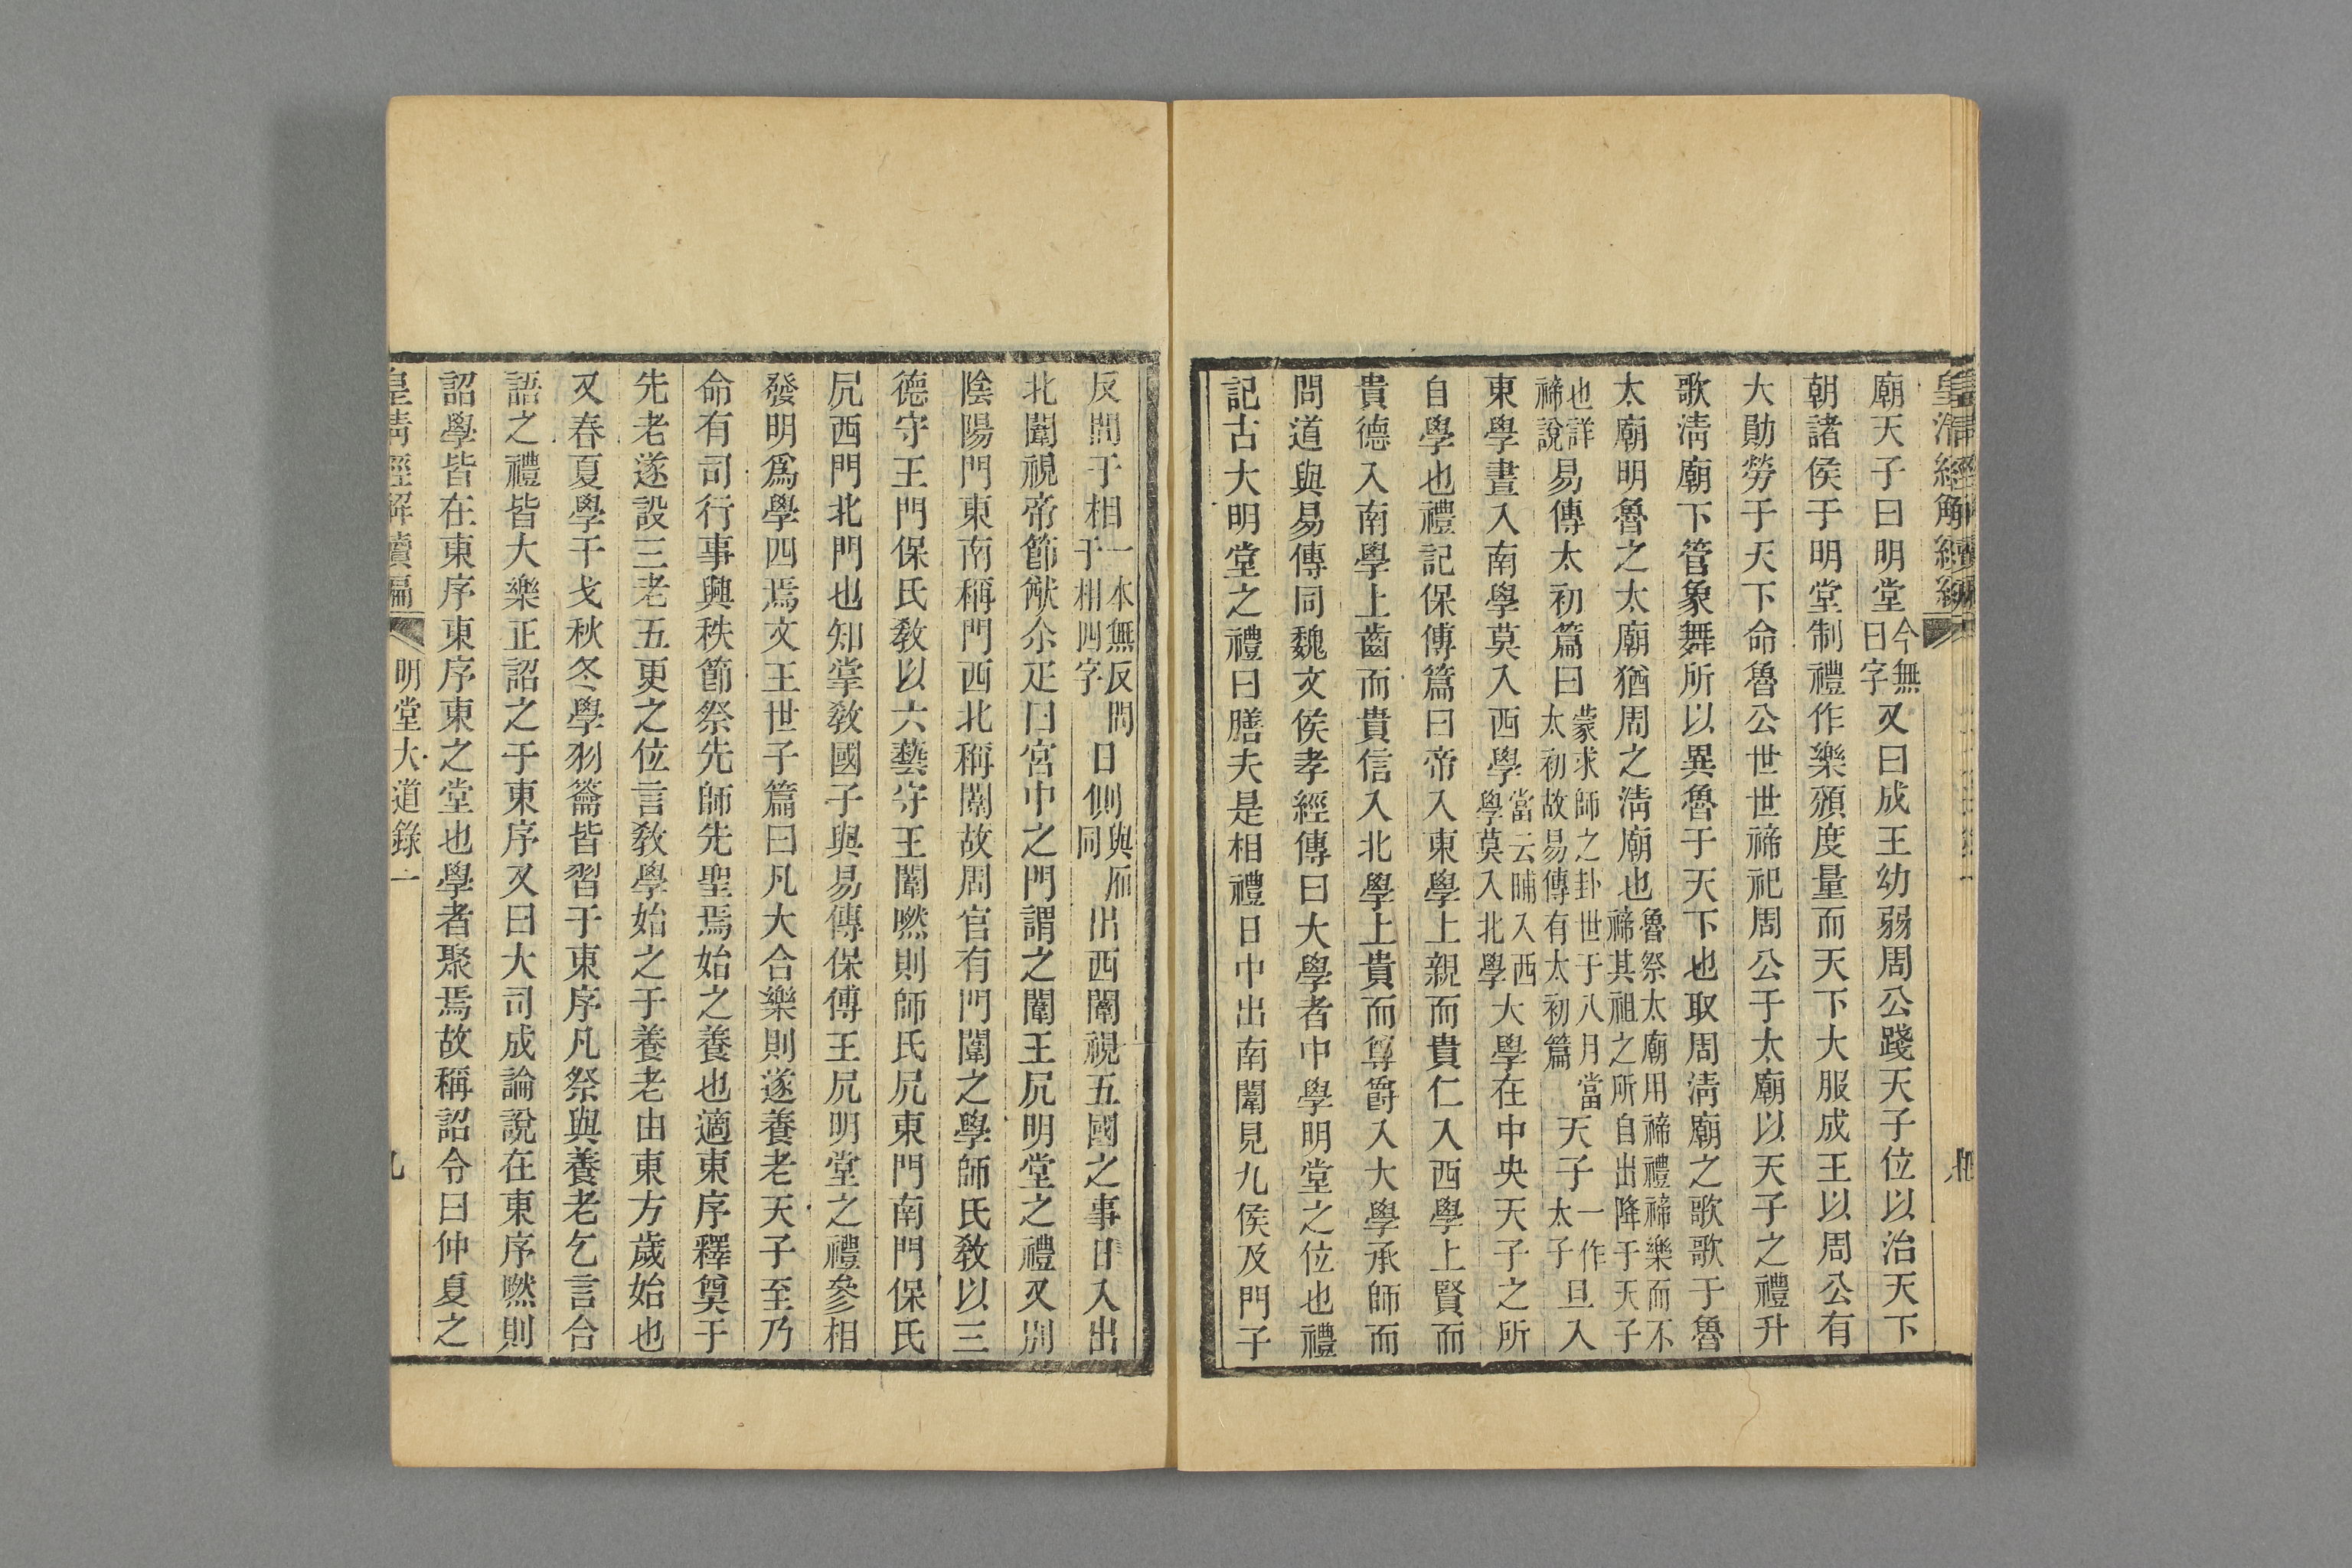 皇清經解續編
廟天子曰明堂今無曰字又曰成王幼弱周公踐天子位以治天下
朝諸侯于明堂制禮作樂頒度量而天下大服成王以周公有
大勛勞于天下命魯公世世禘祀周公于太廟以天子之禮升
歌淸廟下管象舞所以異魯于天下也取周淸廟之歌歌于魯
太廟明魯之太廟猶周之淸廟也魯祭太廟用禘禮禘樂而不禘其祖之所自出降于天子
也詳禘說易傳太初篇曰蒙求師之卦世于八月當太初故易傳有太初篇天子一作太子旦入
東學晝入南學莫入西學當云晡入西學莫入北學大學在中央天子之所
自學也禮記保傅篇曰帝入東學上親而貴仁入西學上賢而
貴德入南學上齒而貴信入北學上貴而尊爵入大學承師而
問道與易傳同魏文侯孝經傳曰大學者中學明堂之位也禮
記古大明堂之禮曰膳夫是相禮日中出南闈見九侯及門子
反問于相一本無反問于相四字日側與𠩄同出西闈視五國之事日入出
北闈視帝節猷尒疋曰宮中之門謂之闈王凥明堂之禮又別
陰陽門東南稱門西北稱闈故周官有門闈之學師氏敎以三
德守王門保氏敎以六藝守王闈然則師氏凥東門南門保氏
凥西門北門也知掌敎國子與易傳保傅王凥明堂之禮參相
發明爲學四焉文王世子篇曰凡大合樂則遂養老天子至乃
命有司行事興秩節祭先師先聖焉始之養也適東序釋奠于
先老遂設三老五更之位言敎學始之于養老由東方歲始也
又春夏學干戈秋冬學羽籥皆習于東序凡祭與養老乞言合
語之禮皆大樂正詔之于東序又曰大司成論說在東序然則
詔學皆在東序東序東之堂也學者聚焉故稱詔令曰仲夏之
皇淸經解續編 明堂大道錄一 九